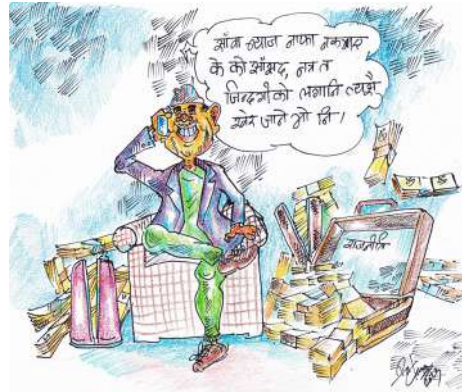 साँवा ब्याज नाफा नकमाए
के को साँसद, नत्र त
जिन्दगीको लगानि त्यसै
खेर जाने भो नि।
राजनीति